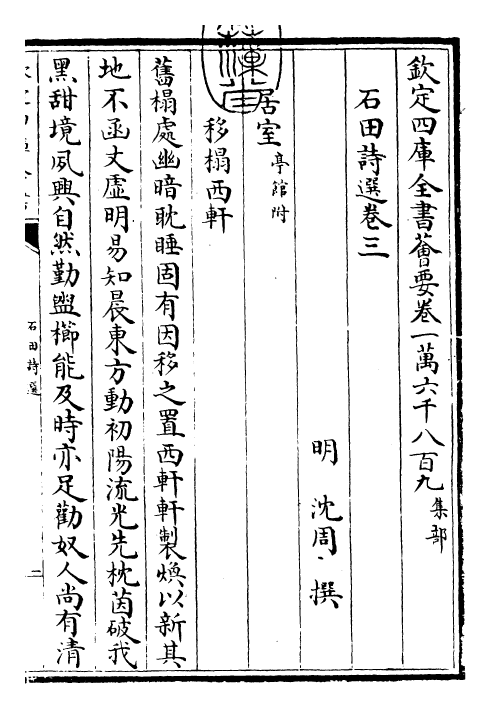 欽定四庫全書薈要卷一萬六千八百九 集部
石田詩選卷三
明 沈周 撰
居室 亭館附
移榻西軒
舊榻處幽暗耽睡固有因移之置西軒軒製煥以新其
地不函丈虛明易知晨東方動初陽流光先枕茵破我
黑甜境夙興自然勤盥櫛能及時亦足勸奴人尚有清
石田詩選
二